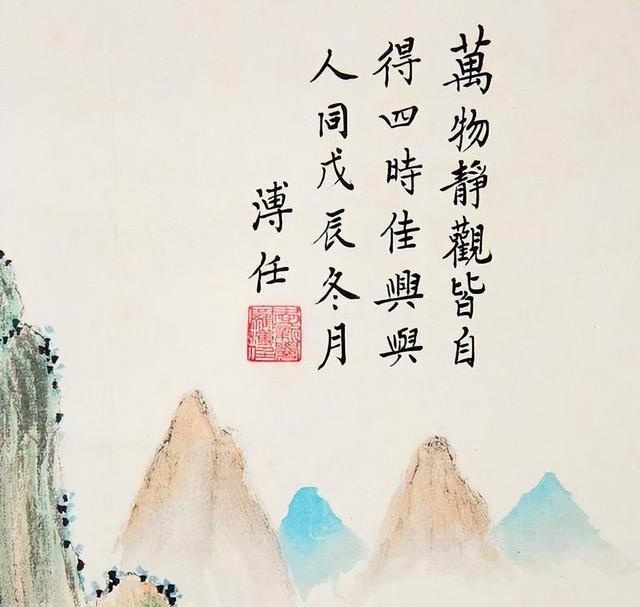 萬物靜觀皆自
得四時佳興與
人同戊辰冬月
溥任